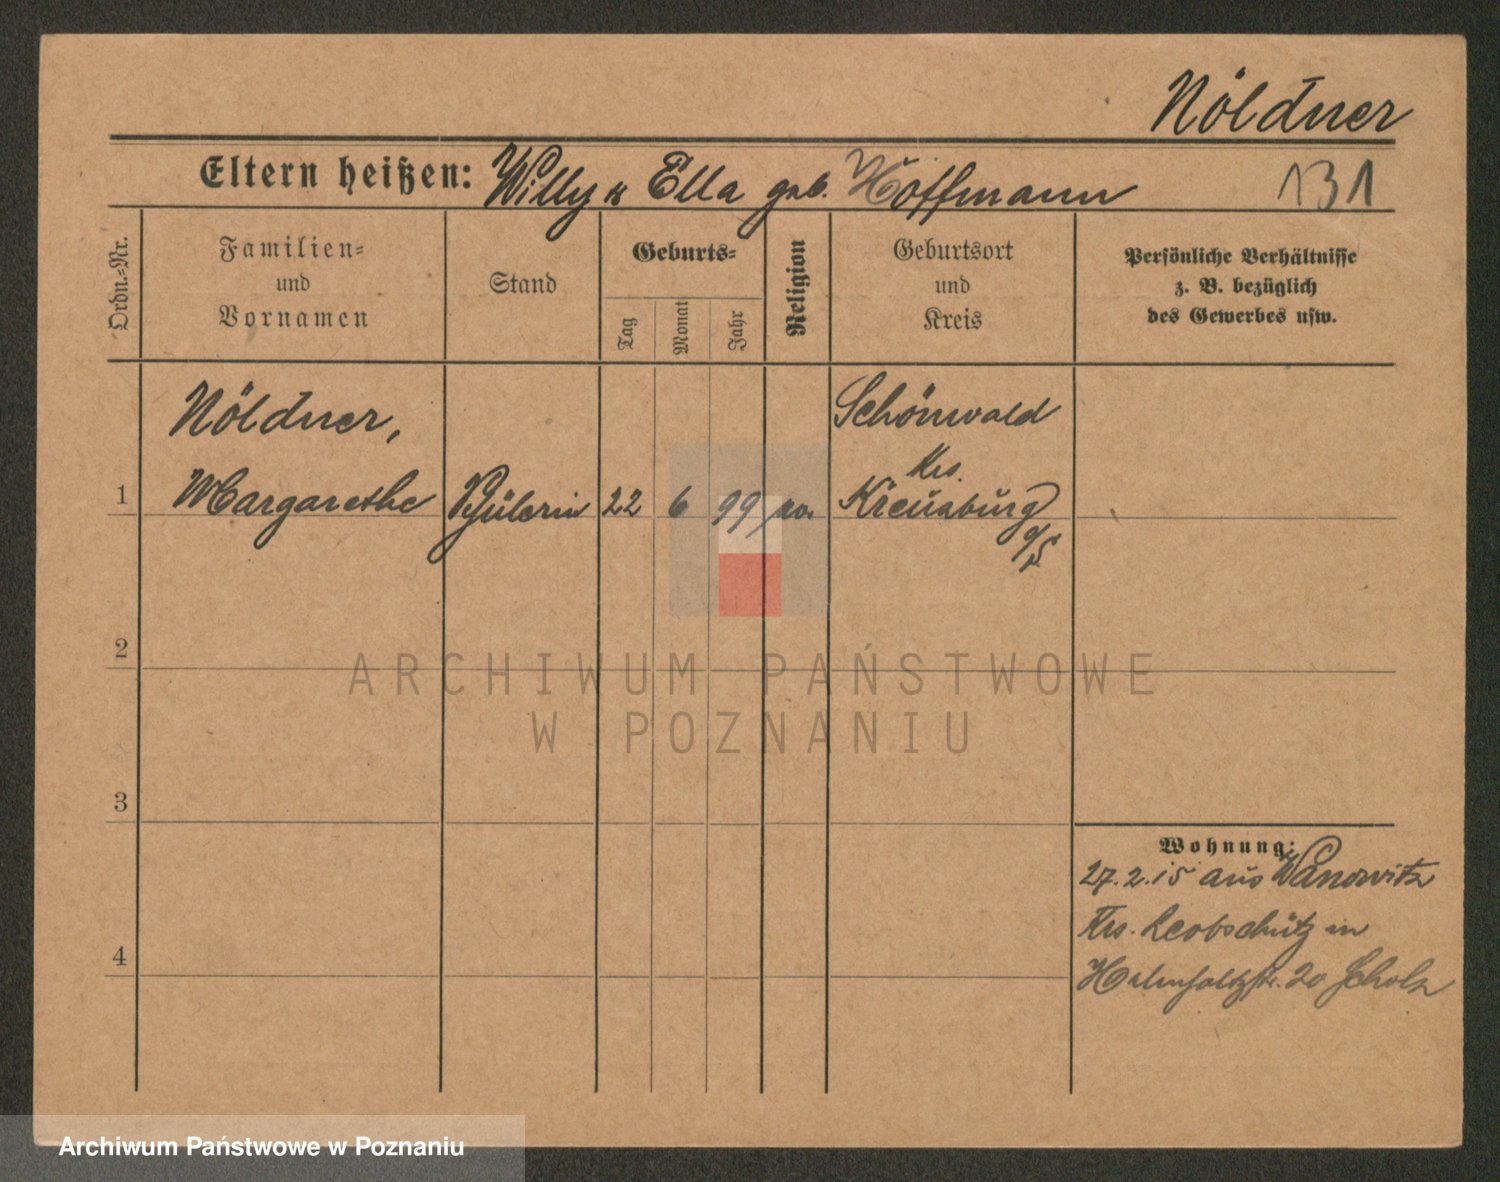 Nöldner
Eltern heißen: Willy u Ella geb. Hoffmann
131
Ordn.=Nr.
Familien=
und
Vornamen
Stand
Geburts=
Tag
Monat
Jahr
Religion
Geburtsort
und
Kreis
Persönliche Verhältnisse
z. B. bezüglich
des Gewerbes usw.
Nöldner,
Margarethe
1
Schülerin
22
6
99
ev.
Schönwald
Krs.
Kreuzburg
O/S
2
3
4
Wohnung:
27.2.15 aus Wanowitz
Krs. Leobschütz in
20 Scholz
ARCHIWUM PAŃSTWOWE
W POZNANIU
Archiwum Państwowe w Poznaniu